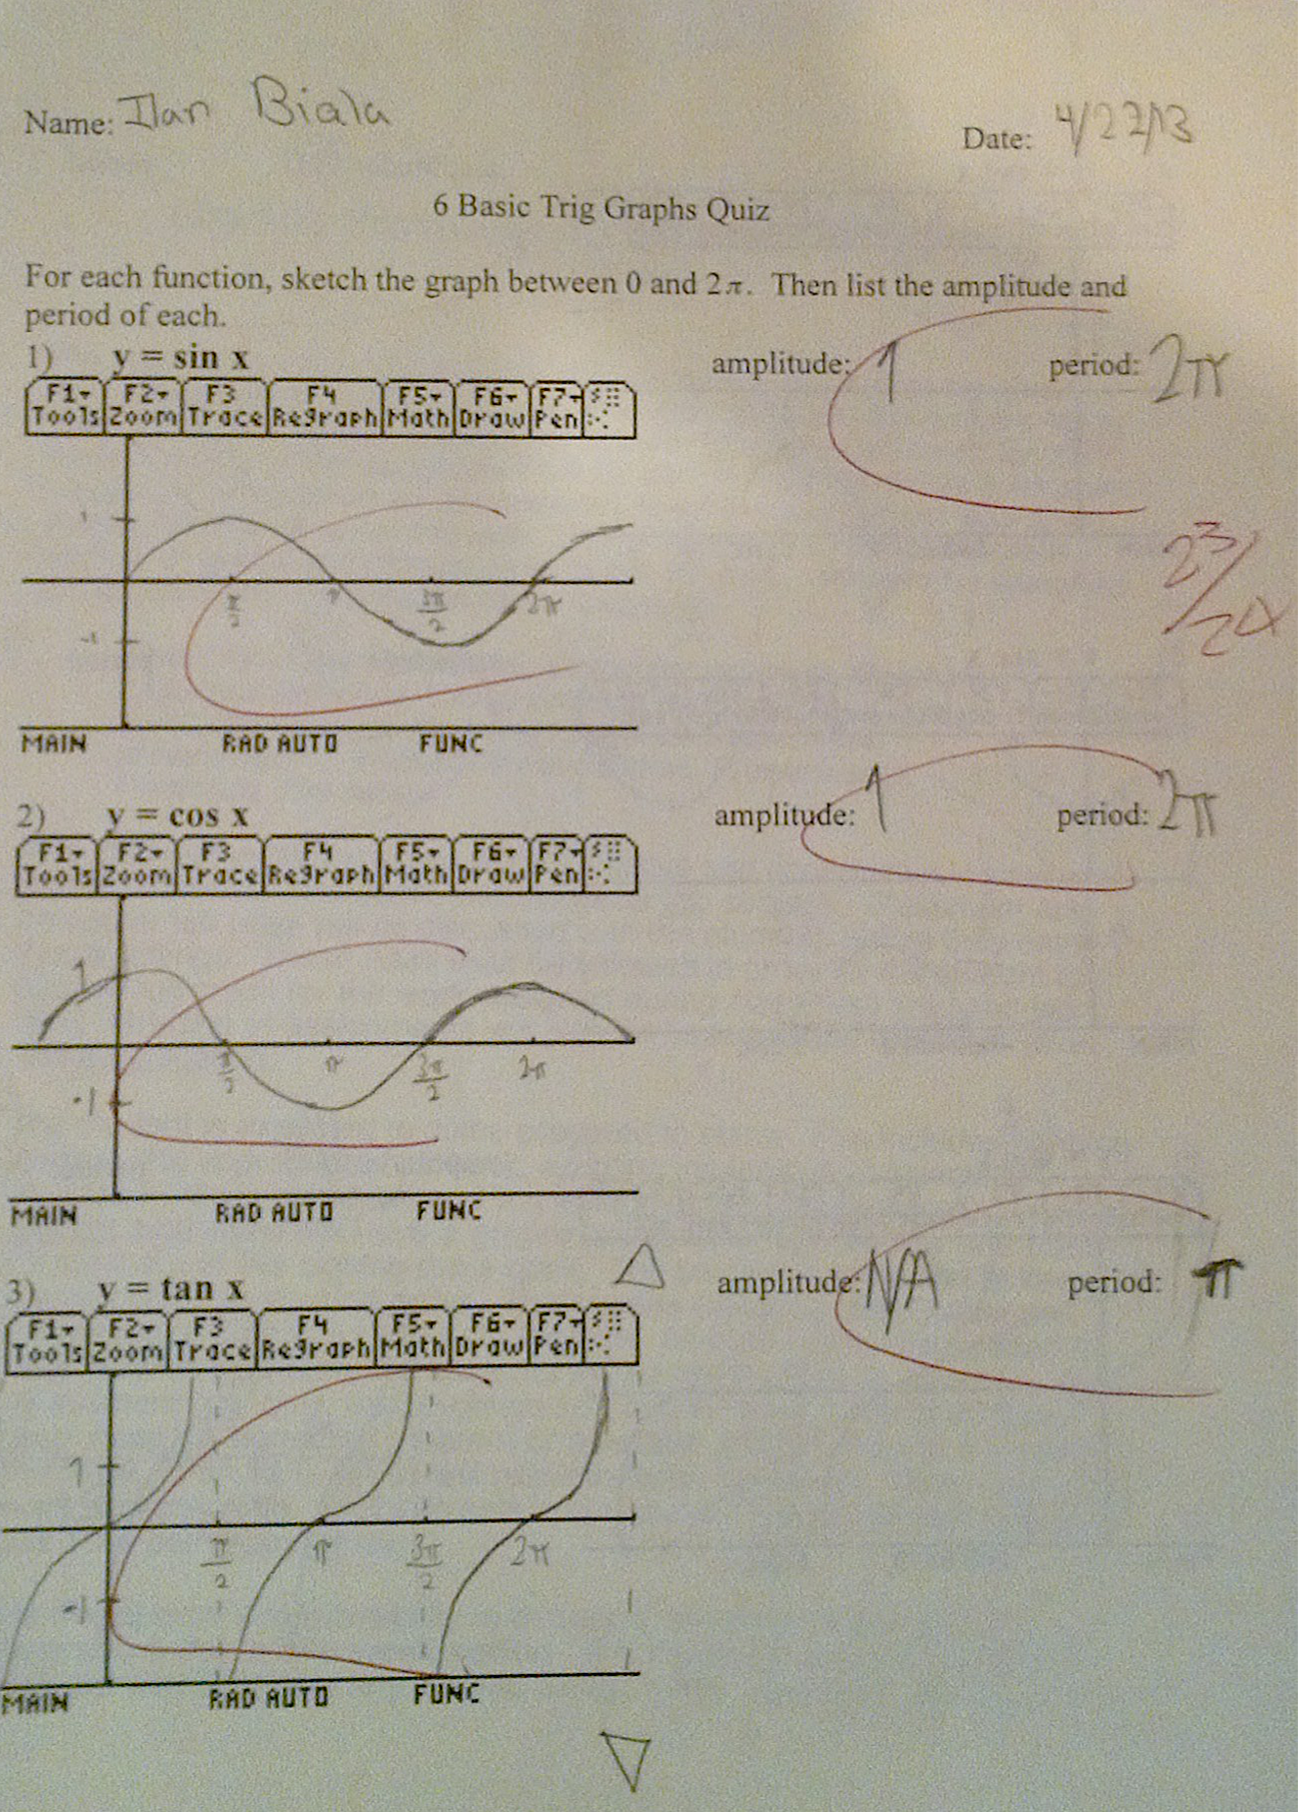 Name: Ilan Biala
Date: 4/22/13
6 Basic Trig Graphs Quiz
For each function, sketch the graph between 0 and 2π. Then list the amplitude and
period of each.
1) y = sin x amplitude: 1 period: 2π
F1 Tools F2 Zoom F3 Trace F4 Regraph F5 Math F6 Draw F7 Pen
1
π/2 π 3π/2 2π
-1
23/24
MAIN RAD AUTO FUNC
2) y = cos x amplitude: 1 period: 2π
F1 Tools F2 Zoom F3 Trace F4 Regraph F5 Math F6 Draw F7 Pen
1
π/2 π 3π/2 2π
-1
MAIN RAD AUTO FUNC
3) y = tan x amplitude: N/A period: π
F1 Tools F2 Zoom F3 Trace F4 Regraph F5 Math F6 Draw F7 Pen
1
π/2 π 3π/2 2π
-1
MAIN RAD AUTO FUNC